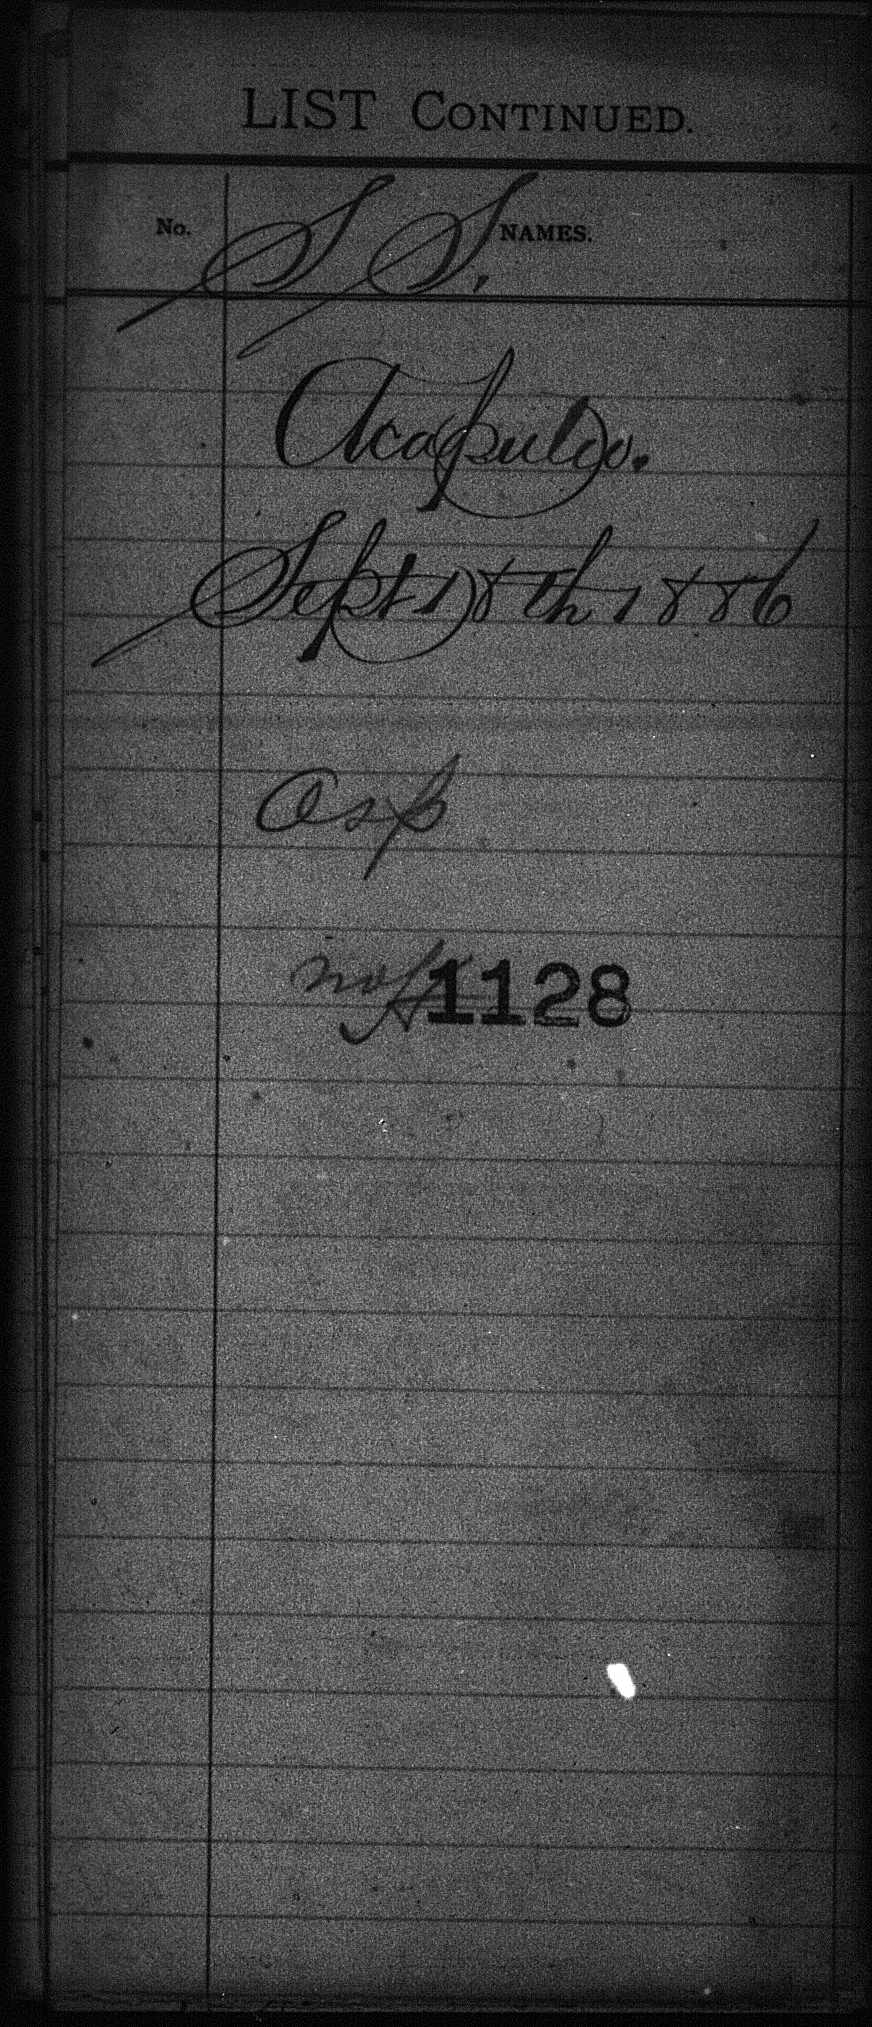 LIST CONTINUED.
No. NAMES.
S S.
Acapulco.
Sept 18th 1886
Asp
1128